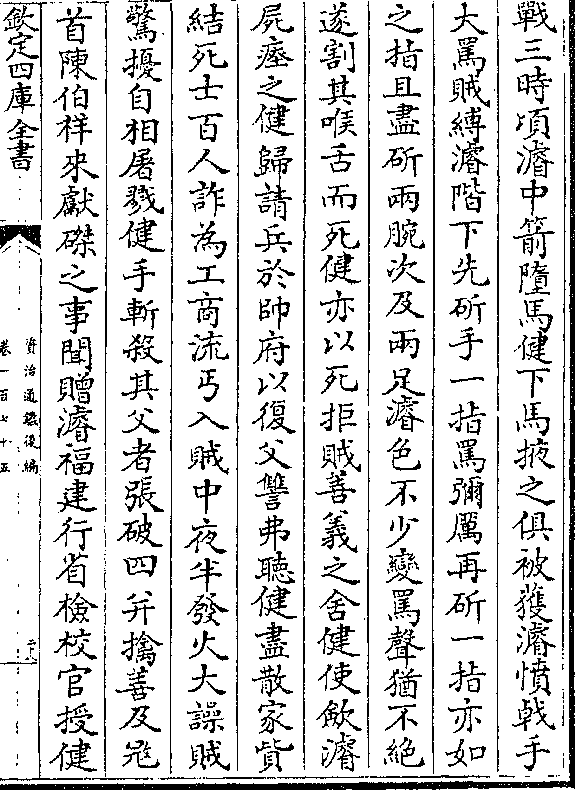 戰三時頃濬中箭墮馬健下馬掖之俱被獲濬憤戟手
大罵賊縛濬階下先斫手一指罵彌厲再斫一指亦如
之指且盡斫兩腕次及兩足濬色不少變罵聲猶不絕
遂割其喉舌而死健亦以死拒賊善義之舍健使歛濬
屍瘞之健歸請兵於帥府以復父讐弗聽健盡散家貲
結死士百人詐為工商流丐入賊中夜半發火大譟賊
驚擾自相屠戮健手斬殺其父者張破四并擒善及冦
首陳伯祥來獻磔之事聞贈濬福建行省檢校官授健
欽定四庫全書
資治通鑑後編
卷一百七十五
二十八